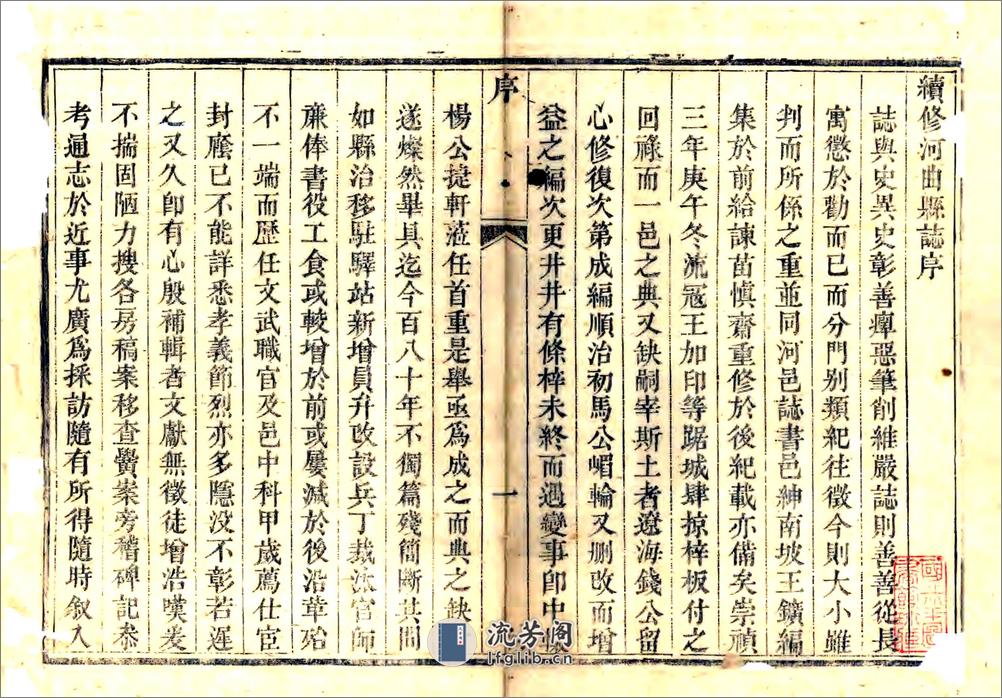 續修河曲縣誌序
誌與史異史彰善癉惡筆削維嚴誌則善善從長
寓懲於勸而已而分門别類紀往徵今則大小雖
判而所係之重並同河邑誌書邑紳南坡王鑛編
集於前給諫苗慎齋重修於後紀載亦備矣崇禎
三年庚午冬流冦王加印等踞城肆掠梓板付之
回祿而一邑之典又缺嗣宰斯土者遼海錢公留
心修復次第成編順治初馬公嵋輪又删改而增
益之編次更井井有條梓未終而遇變事卽中
序
一
楊公捷軒蒞任首重是舉亟爲成之而典之缺
遂燦然畢具迄今百八十年不獨篇殘簡斷其間
如縣治移駐驛站新增員弁改設兵丁裁汰官師
亷俸書役工食或較增於前或屢減於後沿革殆
不一端而歷任文武職官及邑中科甲歲薦仕宦
封廕已不能詳悉孝義節烈亦多隱没不彰若遲
之又久卽有心殷補輯者文獻無徵徒增浩嘆爰
不揣固陋力搜各房稿案移查黌案旁稽碑記叅
考通志於近事尤廣爲採訪隨有所得隨時叙入
流芳阁
lfglib.cn